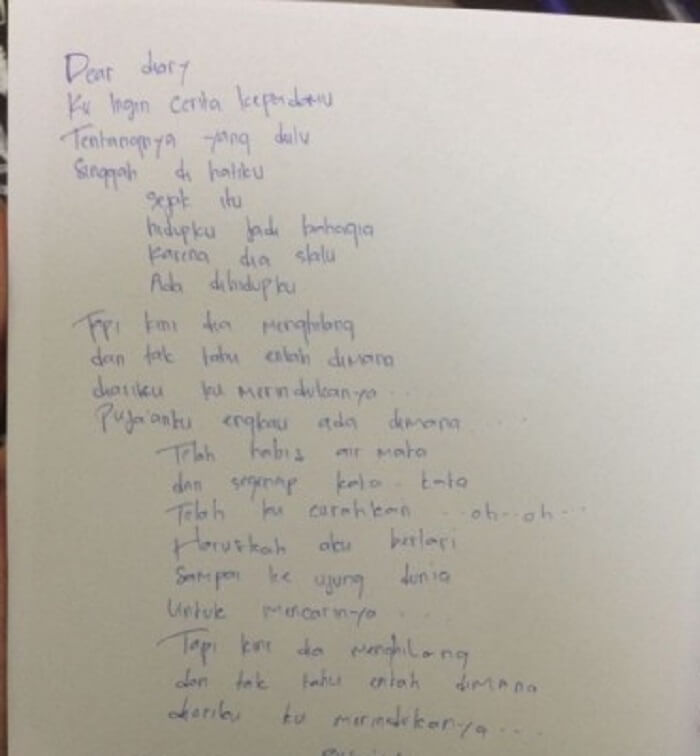 Dear diary
Ku Ingin cerita kepadamu
Tentangnya yang dulu
Singgah di hatiku
sejak itu
hidupku jadi bahagia
Karena dia slalu
Ada dihidupku
Tapi kini dia menghilang
dan tak tahu entah dimana
diariku ku merindukanya...
Puja'anku engkau ada dimana.....
Telah habis air mata
dan segenap kata-kata
Telah ku curahkan ...oh...oh...
Haruskah aku berlari
Sampai ke ujung dunia
Untuk mencarinya...
Tapi kini dia menghilang
dan tak tahu entah dimana
diariku ku merindukanya....